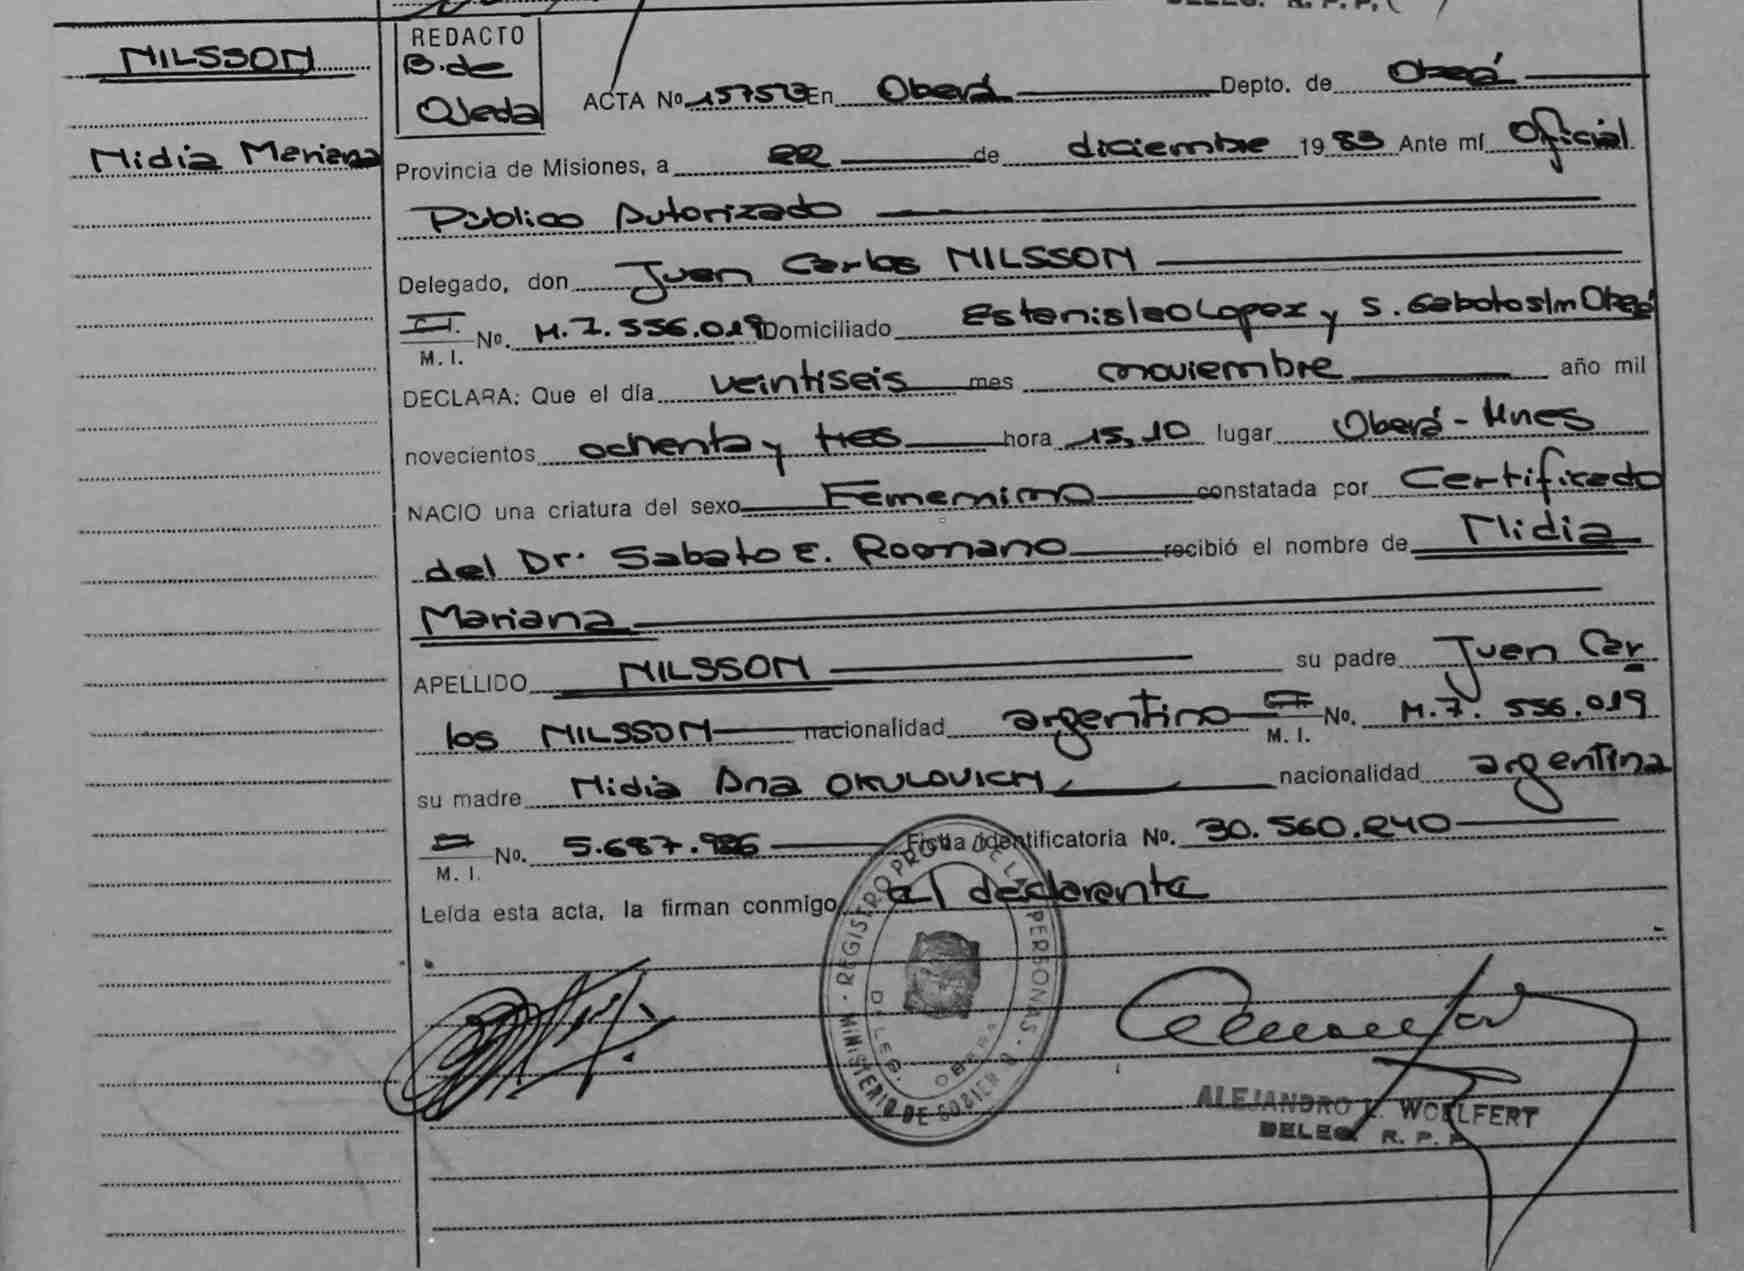 NILSSON
Nidia Mariana
REDACTO
B. de
Ojeda
ACTA No 15752 En Oberá Depto. de Oberá
Provincia de Misiones, a 22 de diciembre 1983 Ante mí Oficial
Público Autorizado
Delegado, don Juan Carlos NILSSON
C.I. M. I. No. M.7.556.019 Domiciliado Estanislao Lopez y S. Gaboto s/n Oberá
DECLARA: Que el día veintiseis mes noviembre año mil
novecientos ochenta y tres hora 15,10 lugar Oberá - Mnes
NACIO una criatura del sexo Femenino constatada por Certificado
del Dr. Sabato E. Romano recibió el nombre de Nidia
Mariana
APELLIDO NILSSON su padre Juan Car
los NILSSON nacionalidad argentino M. I. No. M.7. 556.019
su madre Nidia Ana OKULOVICH nacionalidad argentina
M. I. No. 5.687.986 Ficha identificatoria No. 30.560.240
Leída esta acta, la firman conmigo el declarante
MINISTERIO DE GOBIER · REGISTRO PROV DE LAS PERSONAS ·
DELEG. OBERA
ALEJANDRO WOELFERT
DELEG. R. P. P.